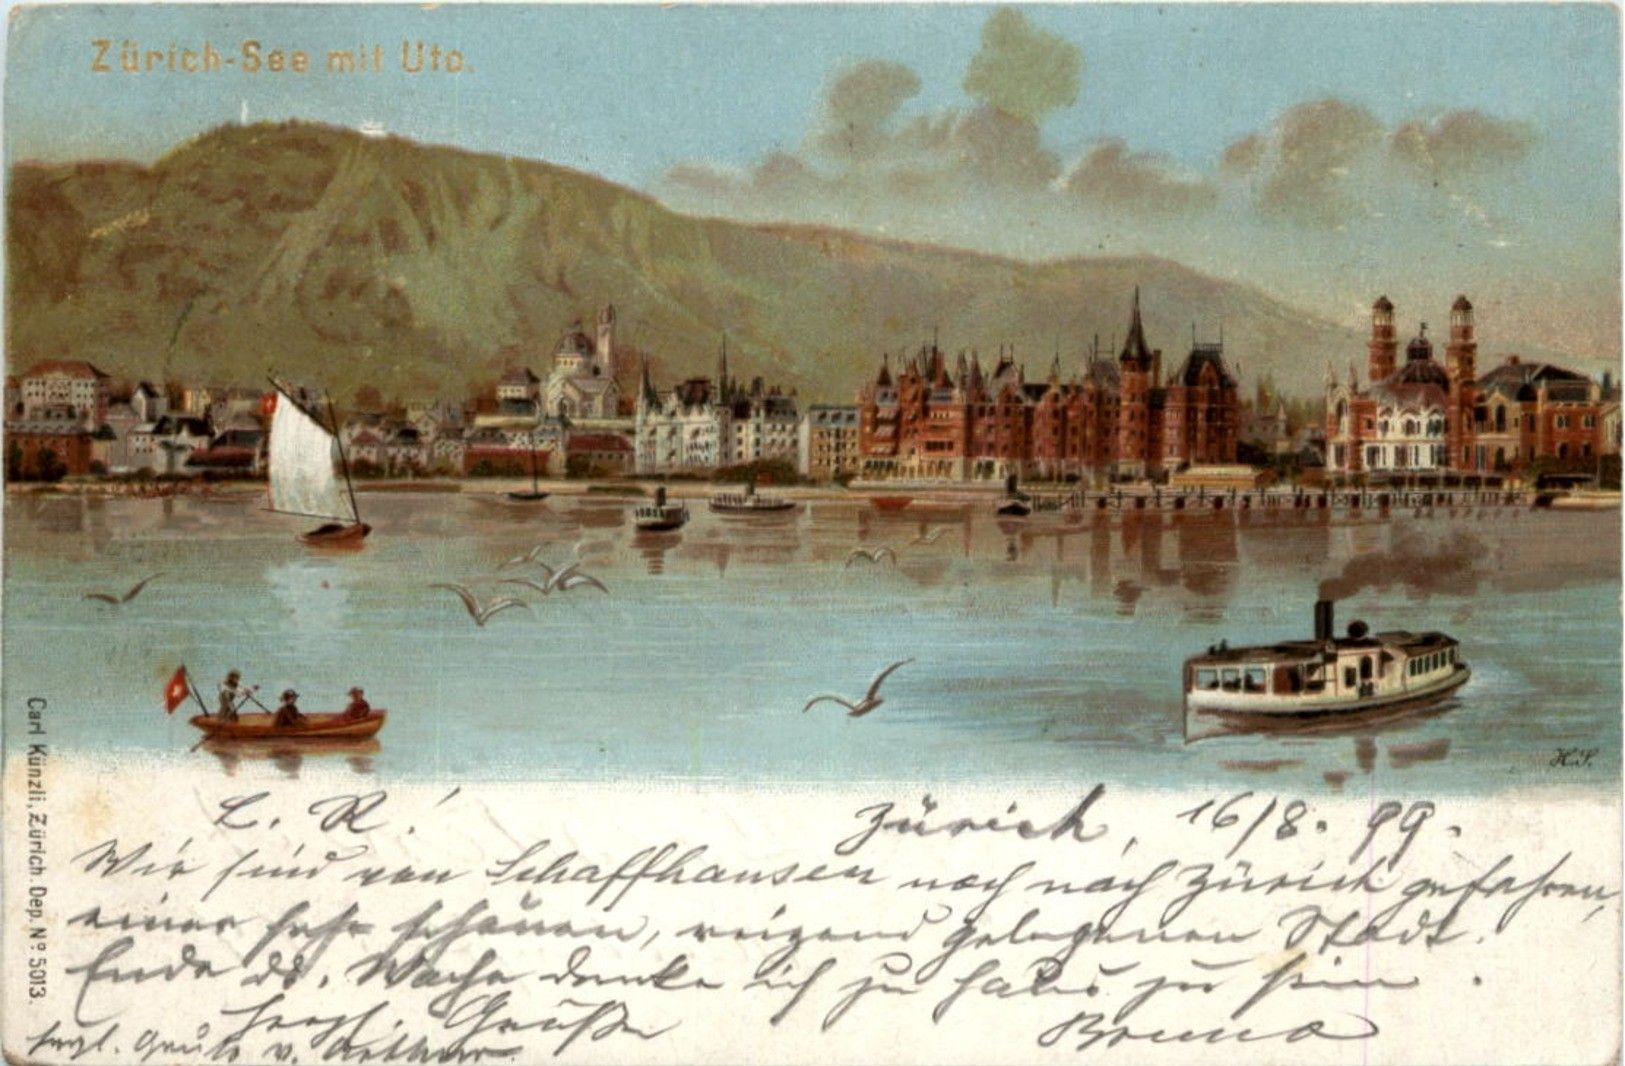 Zürich-See mit Uto.
H.S.
Carl Künzli, Zürich. Dep. Nº 5013.
L. R.!
Zürich, 16/8. 99.
Wir sind von Schaffhausen noch nach Zürich gefahren,
einer sehr schönen, reizend gelegenen Stadt.
Ende ds. Woche denke ich zu Haus zu sein.
herzl. Grüße
Bruno
herzl. Grüße v. Arthur